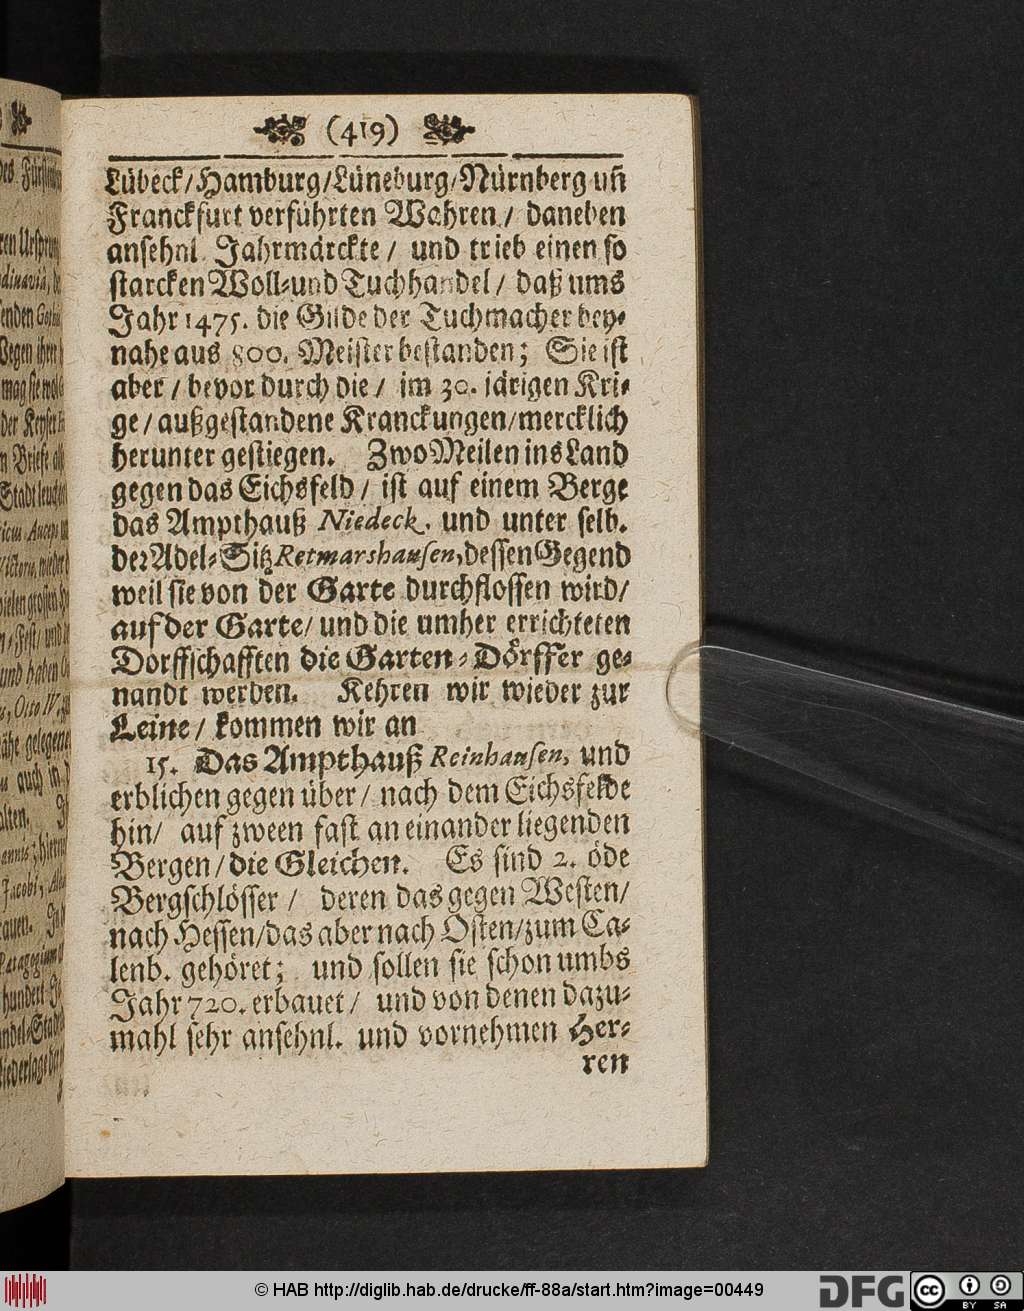 (419)
Lübeck/Hamburg/Lüneburg/Nürnberg uñ
Franckfurt verführten Wahren/ daneben
ansehnl. Jahrmärckte/ und trieb einen so
starcken Woll-und Tuchhandel/ daß ums
Jahr 1475. die Gilde der Tuchmacher bey-
nahe aus 800. Meister bestanden; Sie ist
aber/ bevor durch die/ im 30. järigen Kri-
ge/ außgestandene Kranckungen/mercklich
herunter gestiegen. Zwo Meilen ins Land
gegen das Eichsfeld/ ist auf einem Berge
das Ampthauß Niedeck. und unter selb.
der Adel-Sitz Retmarshausen, dessen Gegend
weil sie von der Garte durchflossen wird/
auf der Garte/ und die umher errichteten
Dorffschafften die Garten-Dörffer ge-
nandt werden. Kehren wir wieder zur
Leine/ kommen wir an
15. Das Ampthauß Reinhausen, und
erblichen gegen über/ nach dem Eichsfelde
hin/ auf zween fast an einander liegenden
Bergen/ die Gleichen. Es sind 2. öde
Bergschlösser/ deren das gegen Westen/
nach Hessen/das aber nach Osten/zum Ca-
lenb. gehöret; und sollen sie schon umbs
Jahr 720. erbauet/ und von denen dazu-
mahl sehr ansehnl. und vornehmen Her-
ren
© HAB http://diglib.hab.de/drucke/ff-88a/start.htm?image=00449
DFG
cc
BY SA